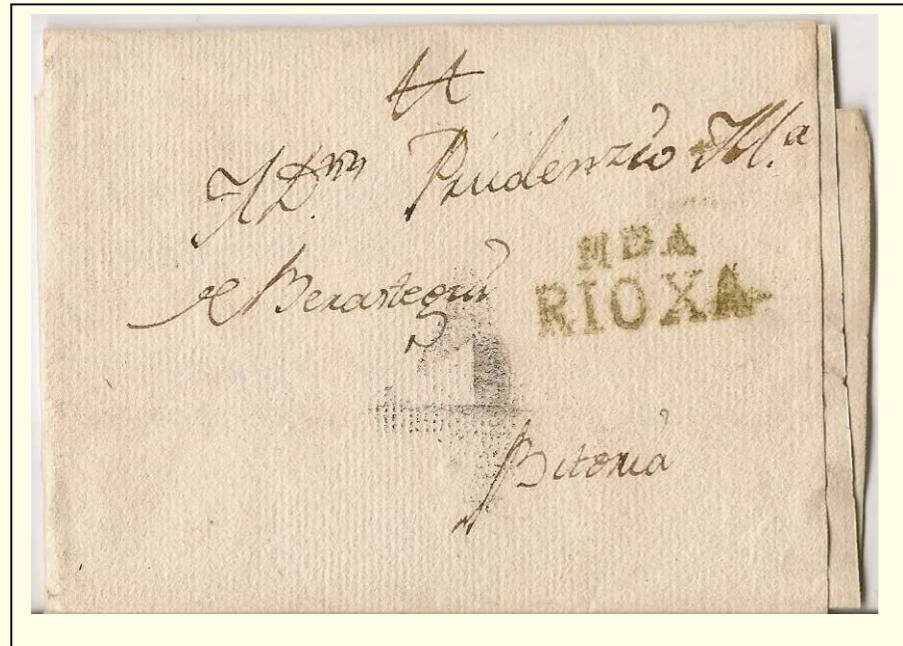 A Dn Prudenzio Ma
MBA
RIOXA
de Berastegui
Bitoria